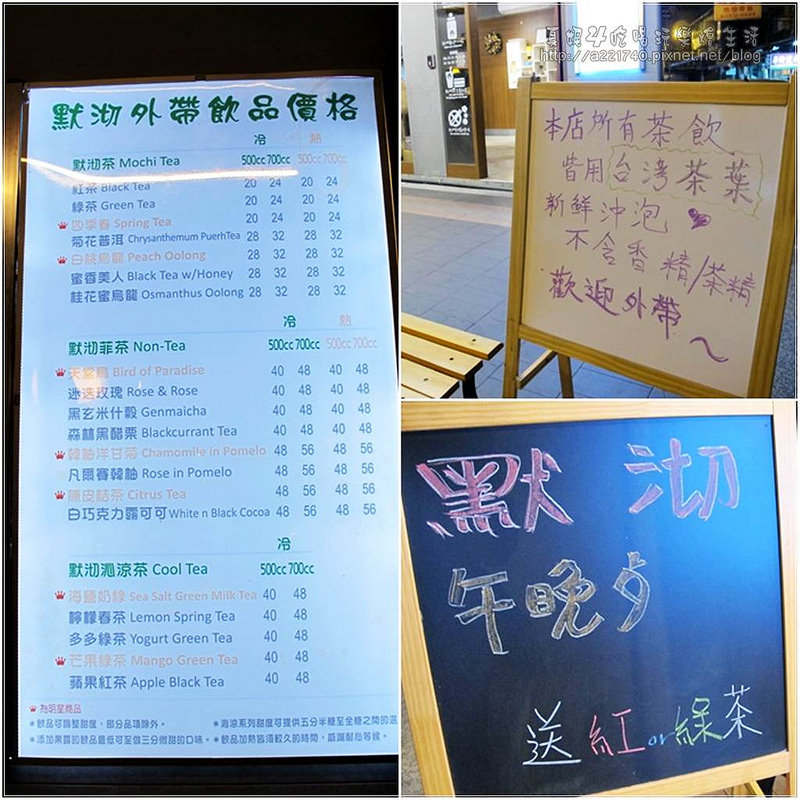 默沏外帶飲品價格
冷 熱
默沏茶 Mochi Tea 500cc 700cc 500cc 700cc
紅茶 Black Tea 20 24 20 24
綠茶 Green Tea 20 24 20 24
四季春 Spring Tea 20 24 20 24
菊花普洱 Chrysanthemum PuerhTea 28 32 28 32
白桃烏龍 Peach Oolong 28 32 28 32
蜜香美人 Black Tea w/Honey 28 32 28 32
桂花蜜烏龍 Osmanthus Oolong 28 32 28 32
冷 熱
默沏菲茶 Non-Tea 500cc 700cc 500cc 700cc
天堂鳥 Bird of Paradise 40 48 40 48
迷迭玫瑰 Rose & Rose 40 48 40 48
黑玄米什穀 Genmaicha 40 48 40 48
森林黑醋栗 Blackcurrant Tea 40 48 40 48
韓柚洋甘菊 Chamomile in Pomelo 48 56 48 56
凡爾賽韓柚 Rose in Pomelo 48 56 48 56
陳皮桔茶 Citrus Tea 48 56 48 56
白巧克力露可可 White n Black Cocoa 48 56 48 56
冷
默沏沁涼茶 Cool Tea 500cc 700cc
海鹽奶綠 Sea Salt Green Milk Tea 40 48
檸檬春茶 Lemon Spring Tea 40 48
多多綠茶 Yogurt Green Tea 40 48
芒果綠茶 Mango Green Tea 40 48
蘋果紅茶 Apple Black Tea 40 48
為明星商品
*飲品可調整甜度，部分品項除外。 *沁涼系列甜度可提供五分半糖至全糖之間的選
*添加果露的飲品最低可至做三分微甜的口味。 *飲品加熱皆須較久的時間，感謝耐心等候。
http://a221740.pixnet.net/blog
本店所有茶飲
皆用台湾茶葉
新鮮沖泡
不含香精/茶精
歡迎外帶~
默沏
午晚
送紅or綠茶